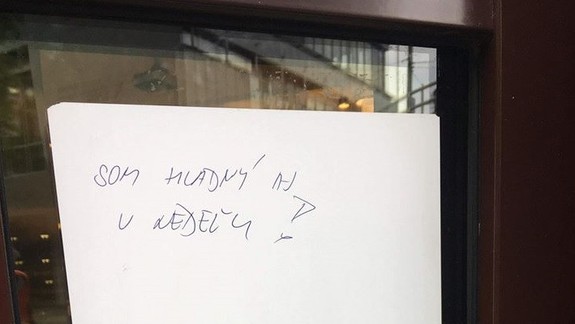 SOM HLADNÝ AJ
V NEDEĽU ?